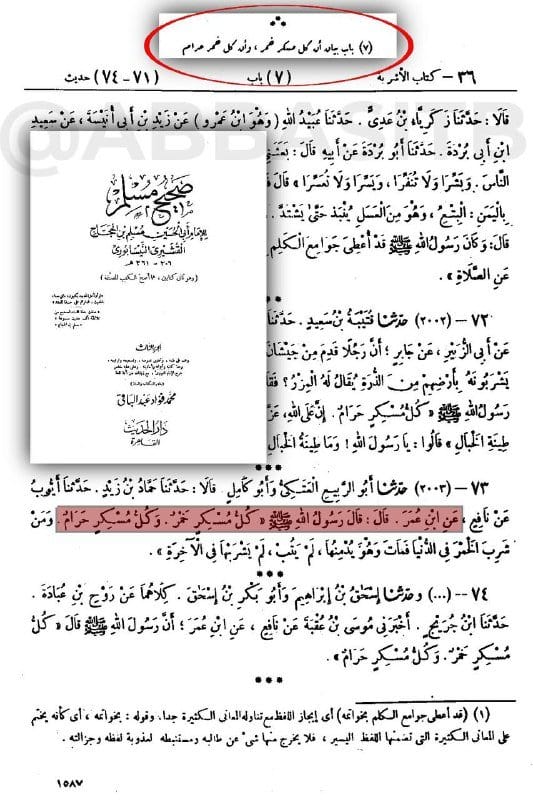 (٧) باب بيان أن كل مسكر خمر ، وأن كل خمر حرام
٣٦ – كتاب الأشربة (٧) باب (٧١-٧٤) حديث
قَالَا : حَدَّثَنَا زَكَرِيَّاءُ بْنُ عَدِيٍّ . حَدَّثَنَا عُبَيْدُ اللهِ ( وَهُوَ ابْنُ عَمْرٍو ) عَنْ زَيْدِ بْنِ أَبِي أُنَيْسَةَ ، عَنْ سَعِيدِ
ابْنِ أَبِي بُرْدَةَ . حَدَّثَنَا أَبُو بُرْدَةَ عَنْ أَبِيهِ قَالَ :
النَّاسَ . وَبَشِّرَا وَلَا تُنَفِّرَا ، وَيَسِّرَا وَلَا تُعَسِّرَا » قَالَ
بِالْيَمَنِ : الْبِتْعُ ، وَهُوَ مِنَ الْعَسَلِ يُنْبَذُ حَتَّى يَشْتَدَّ .
قَالَ : وَكَانَ رَسُولُ اللهِ ﷺ قَدْ أُعْطِيَ جَوَامِعَ الْكَلِمِ
عَنِ الصَّلَاةِ »
***
صحيح مسلم
للإمام أبي الحسين مسلم بن الحجاج
القشيري النيسابوري
٢٠٦ – ٢٦١ هـ
الجزء الثالث
محمد فؤاد عبد الباقي
دار الحديث
القاهرة
٧٢ – (٢٠٠٢) حدثنا قُتَيْبَةُ بْنُ سَعِيدٍ . حَدَّثَنَا
عَنْ أَبِي الزُّبَيْرِ ، عَنْ جَابِرٍ ؛ أَنَّ رَجُلًا قَدِمَ مِنْ جَيْشَانَ
يَشْرَبُونَهُ بِأَرْضِهِمْ مِنَ الذُّرَةِ يُقَالُ لَهُ الْمِزْرُ ؟
رَسُولُ اللهِ ﷺ « كُلُّ مُسْكِرٍ حَرَامٌ . إِنَّ عَلَى اللهِ ،
طِينَةِ الْخَبَالِ » قَالُوا : يَا رَسُولَ اللهِ ! وَمَا طِينَةُ الْخَبَالِ
***
٧٣ – (٢٠٠٣) حدثنا أَبُو الرَّبِيعِ الْعَتَكِيُّ وَأَبُو كَامِلٍ . قَالَا : حَدَّثَنَا حَمَّادُ بْنُ زَيْدٍ . حَدَّثَنَا أَيُّوبُ
عَنْ نَافِعٍ ، عَنِ ابْنِ عُمَرَ . قَالَ : قَالَ رَسُولُ اللهِ ﷺ « كُلُّ مُسْكِرٍ خَمْرٌ . وَكُلُّ مُسْكِرٍ حَرَامٌ . وَمَنْ
شَرِبَ الْخَمْرَ فِي الدُّنْيَا فَمَاتَ وَهُوَ يُدْمِنُهَا ، لَمْ يَتُبْ ، لَمْ يَشْرَبْهَا فِي الْآخِرَةِ »
***
٧٤ – (...) وحدثنا إِسْحَقُ بْنُ إِبْرَاهِيمَ وَأَبُو بَكْرِ بْنُ إِسْحَقَ . كِلَاهُمَا عَنْ رَوْحِ بْنِ عُبَادَةَ .
حَدَّثَنَا ابْنُ جُرَيْجٍ . أَخْبَرَنِي مُوسَى بْنُ عُقْبَةَ عَنْ نَافِعٍ ، عَنِ ابْنِ عُمَرَ ؛ أَنَّ رَسُولَ اللهِ ﷺ قَالَ « كُلُّ
مُسْكِرٍ خَمْرٌ . وَكُلُّ مُسْكِرٍ حَرَامٌ »
***
(١) ( قد أعطى جوامع الكلم بخواتمه ) أى إيجاز اللفظ مع تناوله المعانى الكثيرة جدا . وقوله : بخواتمه ، أى كأنه يختم
على المعانى الكثيرة التى تضمنها اللفظ اليسير ، فلا يخرج منها شئ عن طالبه ومستنبطه لعذوبة لفظه وجزالته .
١٥٨٧